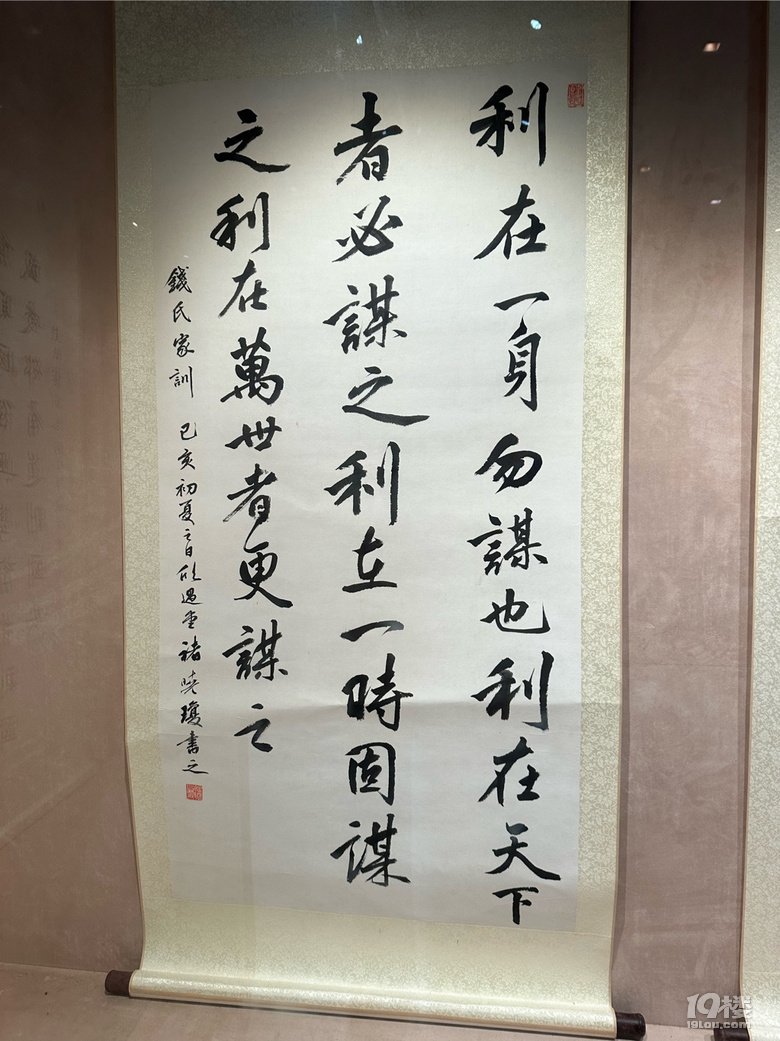 利在一身勿謀也利在天下
者必謀之利在一時固謀
之利在萬世者更謀之
錢氏家訓 己亥初夏之日欣遇堂褚曉瓊書之
19楼
19lou.com